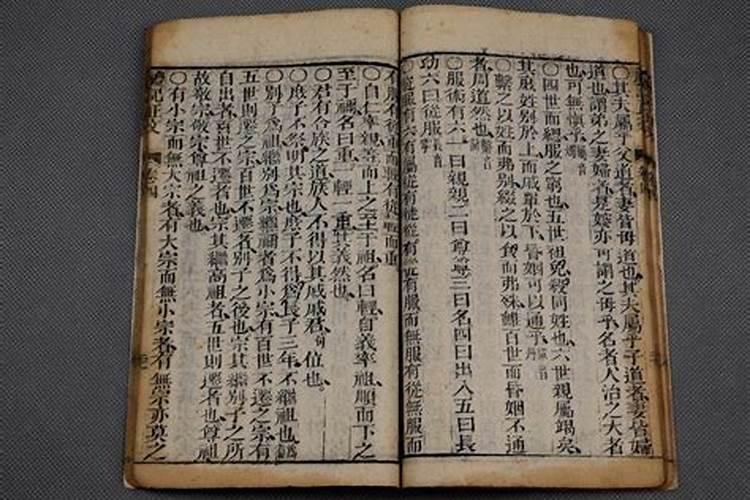 ○其夫屬乎父道者妻皆母道也其夫屬乎子道者妻皆婦
道也謂弟之妻婦者是嫂亦可謂之母乎名者人治之大
也可無慎乎
○四世而緦服之窮也五世袒免殺同姓也六世親屬竭矣
其庶姓別於上而戚單於下昏姻可以通乎
○繫之以姓而弗別綴之以食而弗殊雖百世而昏姻不通
者周道然也
○服術有六一曰親親二曰尊尊三曰名四曰出入五曰長
幼六曰從服
○從服有六有屬從有徒從有從有服而無服有從無服而
有服有從重而輕有從輕而重
○自仁率親等而上之至于祖名曰輕自義率祖順而下之
至于禰名曰重一輕一重其義然也
○君有合族之道族人不得以其戚戚君位也
○庶子不祭明其宗也庶子不得為長子三年不繼祖也
○別子為祖繼別為宗繼禰者為小宗有百世不遷之宗有
五世則遷之宗百世不遷者別子之後也宗其繼別子之所
自出者百世不遷者也宗其繼高祖者五世則遷者也尊祖
故敬宗敬宗尊祖之義也
○有小宗而無大宗者有大宗而無小宗者有無宗亦莫之